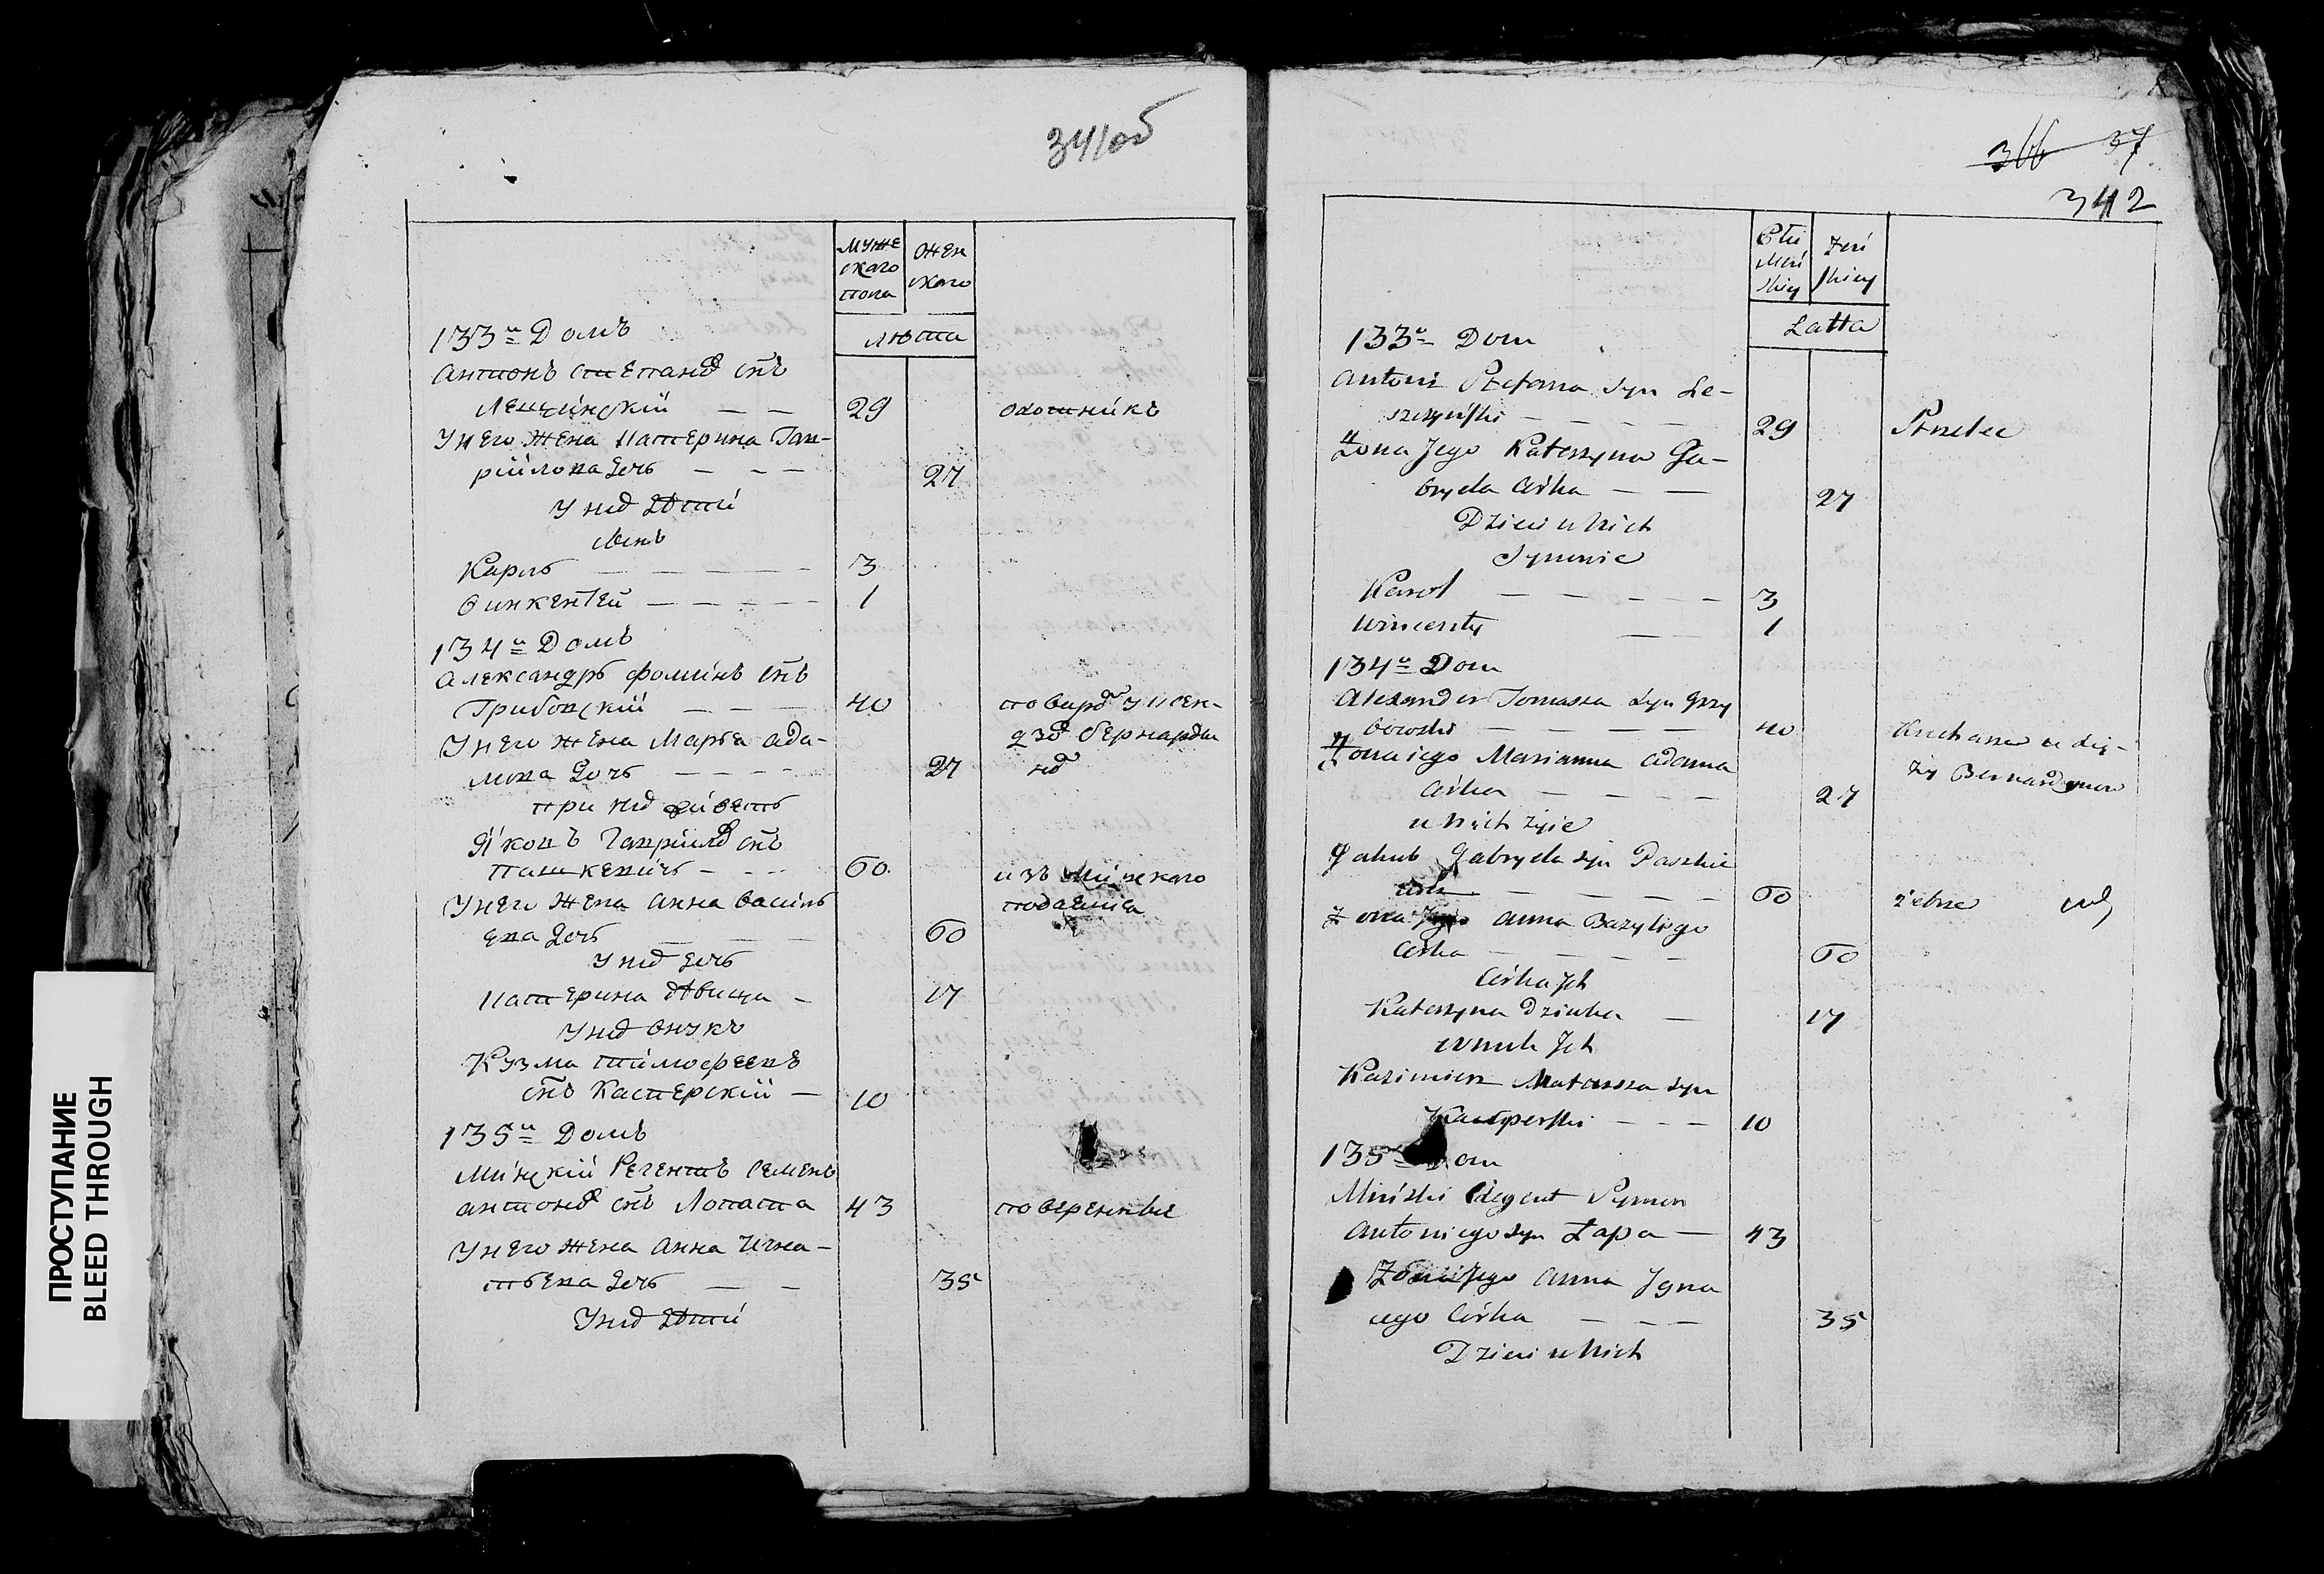 ПРОСТУПАНИЕ
BLEED THROUGH
341об
муже
ского
пола
жен
ского
лѣта
133й Домъ
Антонъ Степановъ снъ
Лещинскій — — 29 охотникъ
У него жена Катерина Гав-
рiилова дочь — — — 27
У них дѣти
Карлъ — — — — — 3
Викентей — — — — 1
134й Домъ
Александръ Фоминъ снъ
Грибовскій — — — 40 поваръ у ксен-
У него жена Марья Ада- дзов бернарди
мова дочь — — — — 27 нов
при них
Яковъ Гавриилов снъ
Пашкевичь — — — 60 изъ Минского
У него жена Анна Василь
ева дочь — — — 60
У них дочь
Катерина дѣвица — 17
У них внукъ
Кузма Тимофеевъ
снъ Касперский — 10
135й Домъ
Минскій Регентъ Семенъ
Антонов снъ Лопата 43
У него жена Анна Игна-
тьева дочь — — 35
У них дѣти
366 37
342
Płci
Męż
skiey
Żeń
skiey
Latta
133й Dom
Antoni Stefana syn Le-
szczyński — — — — 29 Strzelec
Żona Jego Katerzyna Ga-
bryela Córka — — 27
Dzieci u Nich
Synowie
Karol — — — — — 3
Wincenty — — 1
134й Dom
Alexander Tomasza syn Grzy
bowski — — — — 40 Kucharz u
Żona iego Marianna Adama Bernardynow
Córka — — — — 27
u Nich żyie
Jakub Gabryela syn Paszkie
wicz — — — — 60 żebrze
Żona Jego Anna Bazylego
Córka — — — — 60
Córka Jch
Katerzyna Dziewka — 17
wnuk Jch
Kazimierz Mateusza syn
Kasperski — — — 10
135й Dom
Miński Regent Symon
Antoniego syn Łapa — 43
Żona Jego Anna Jgna
cego Córka — — — 35
Dzieci u Nich